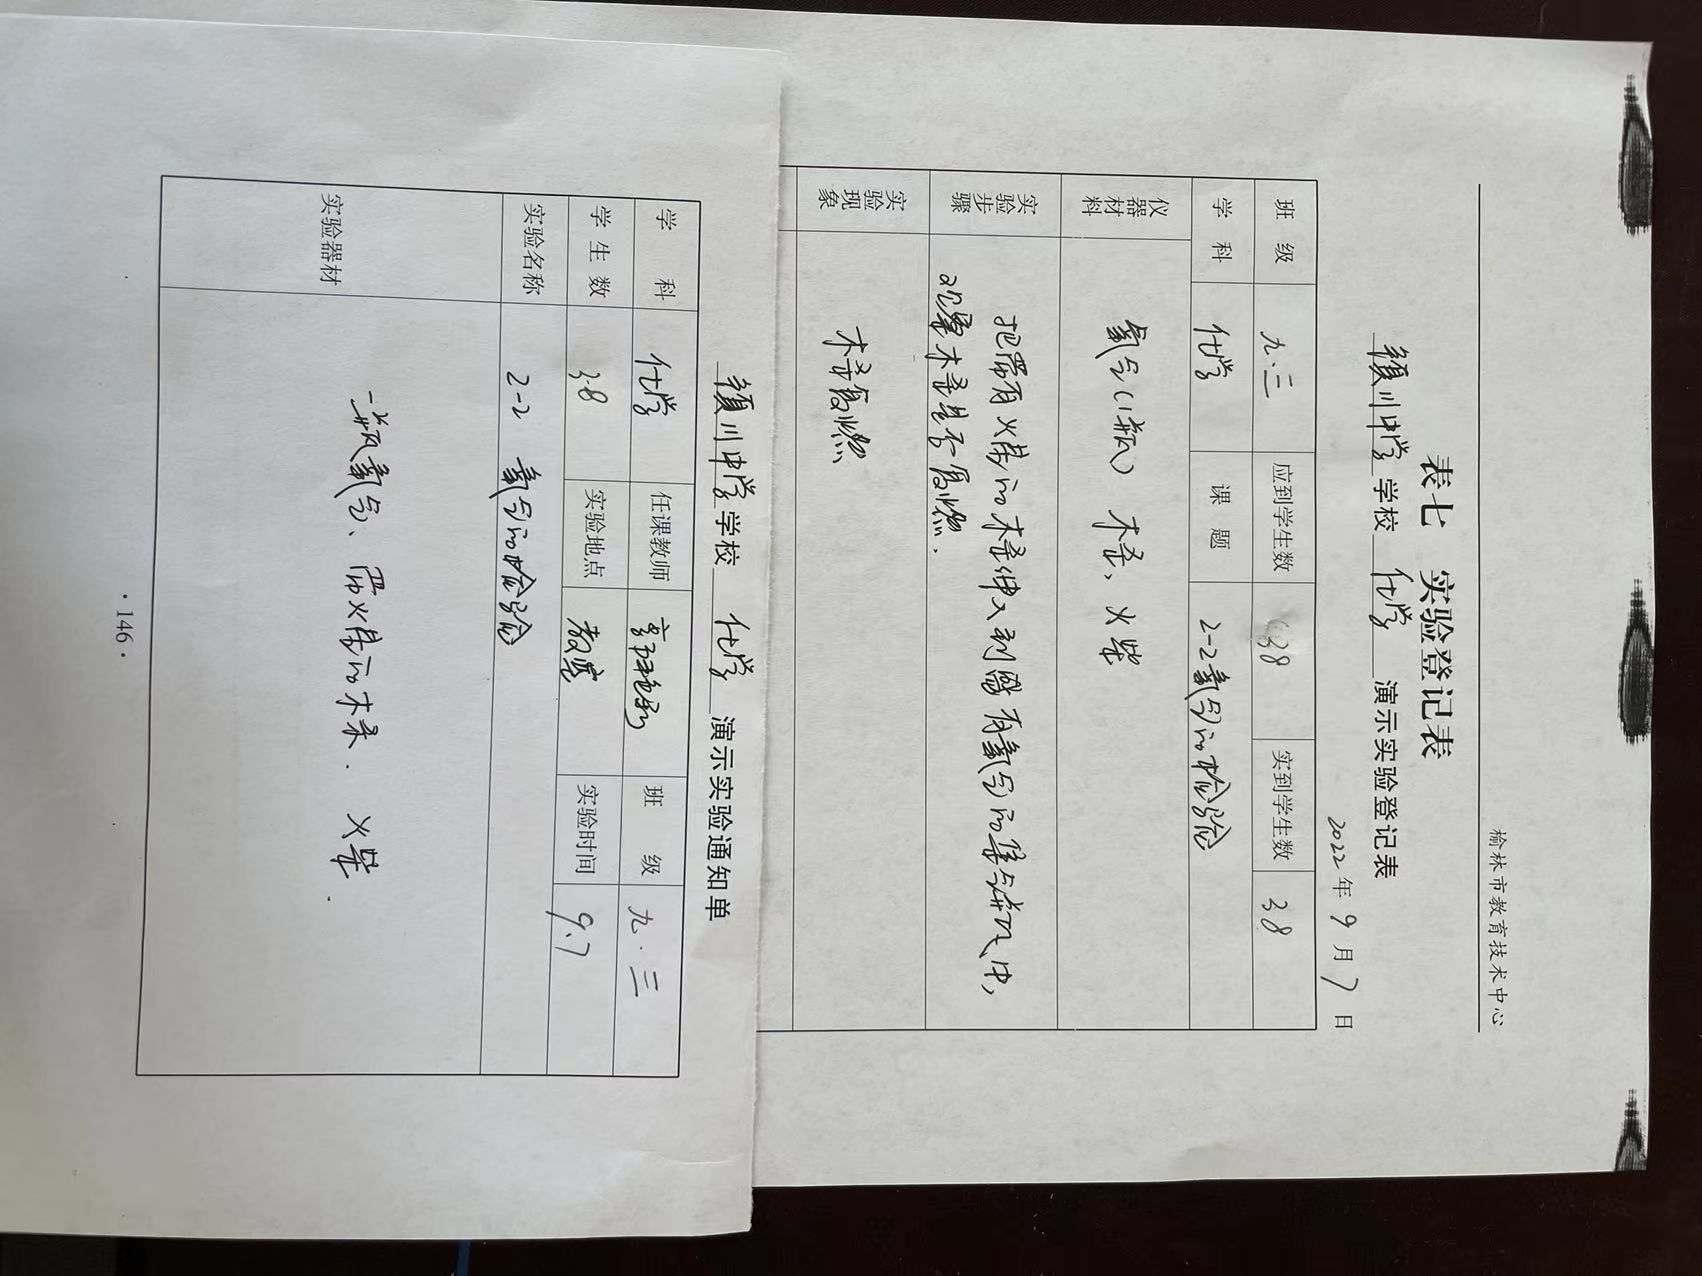 榆林市教育技术中心
表七 实验登记表
镇川中学学校 化学 演示实验登记表
2022年9月7日
班级 九.三 应到学生数 38 实到学生数 38
学科 化学 课题 2-2氧气的检验
仪器材料 氧气(1瓶) 木条、火柴
实验步骤 把带有火星的木条伸入到盛有氧气的集气瓶中,
观察木条是否复燃.
实验现象 木条复燃
镇川中学学校 化学 演示实验通知单
学科 化学 任课教师 班级 九.三
学生数 38 实验地点 教室 实验时间 9.7
实验名称 2-2 氧气的检验
实验器材 一瓶氧气、带火星的木条. 火柴.
·146·